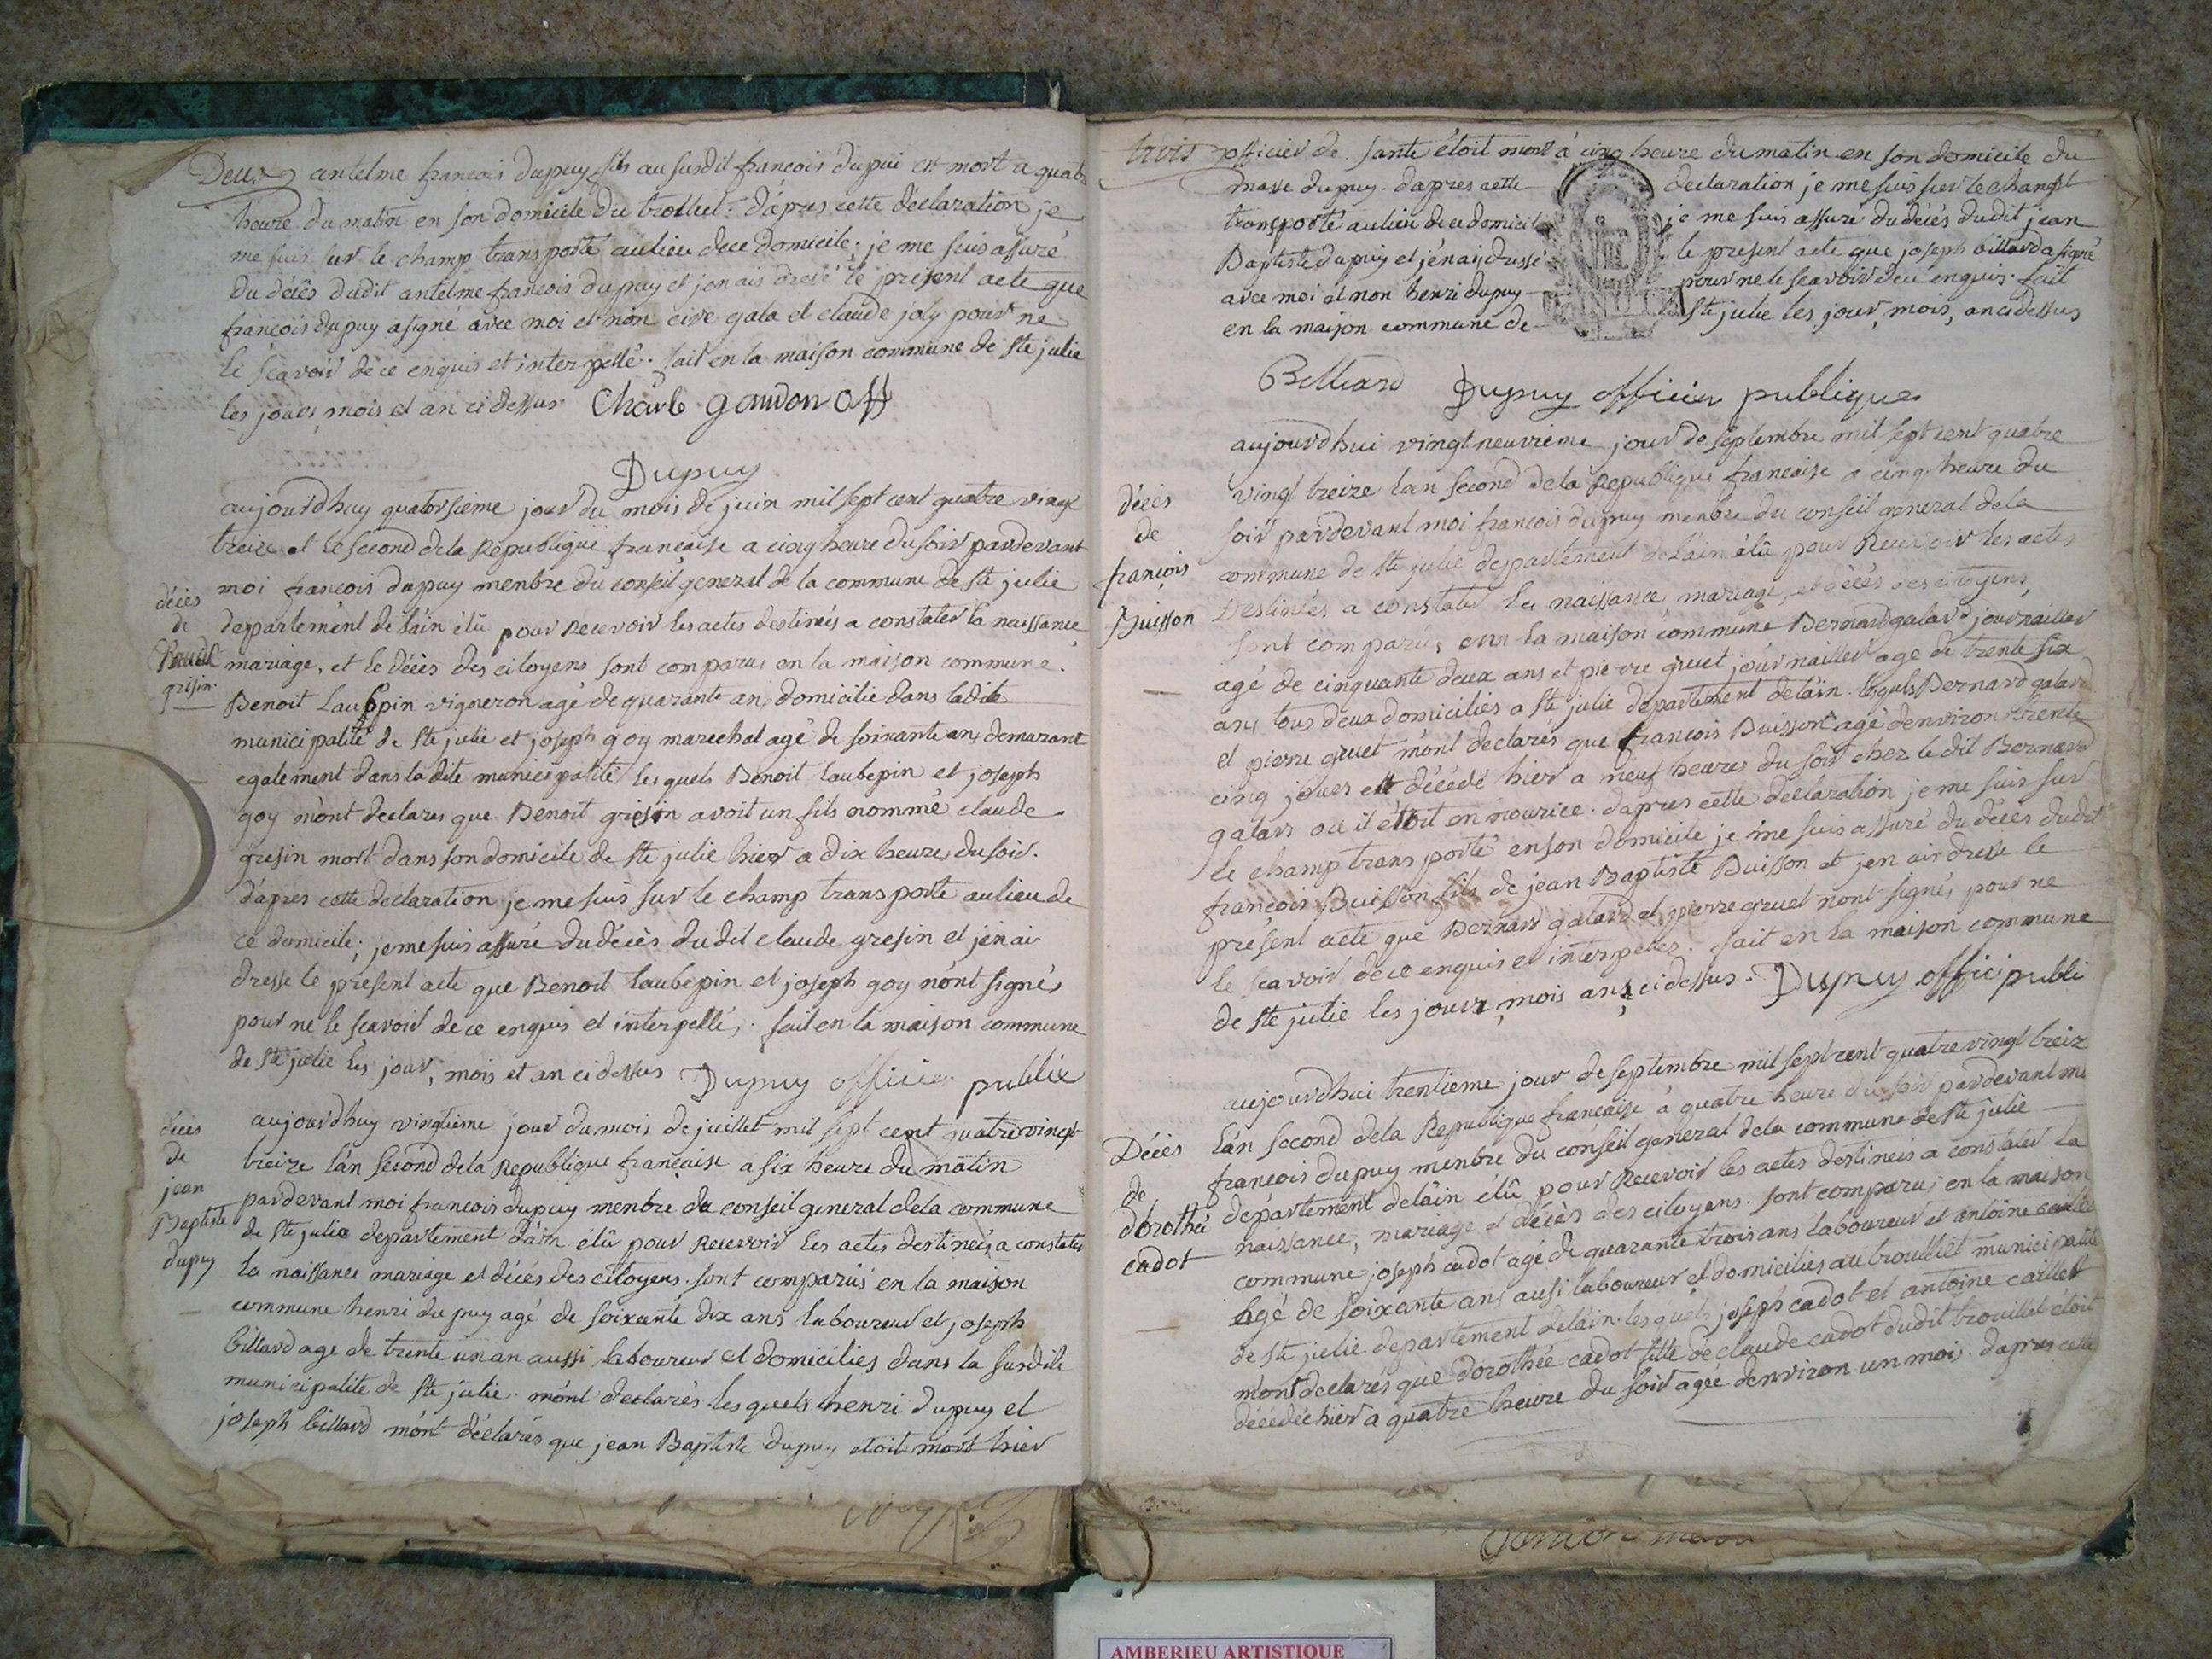 Deux antelme francois dupuy fils au susdit francois dupui est mort a quatre
heure du matin en son domicile du trolliet. d'apres cette déclaration je
me suis sur le champ transporté au lieu de ce domicile. je me suis assuré
du décès dudit antelme francois dupuy et j'en ais dresé le present acte que
françois dupuy a signé avec moi et non cive gala et claude joly pour ne
le scavoir de ce enquis et interpellé. fait en la maison commune de ste julie
les jours, mois et an ci dessus Charle gandon off
Dupuy
aujourdhuy quatorsieme jour du mois de juin mil sept cent quatre vingt
treize et le second de la Republique francaise a cinq heure du soir pardevant
moi francois dupuy menbre du conseil general de la commune de ste julie
departement de l'ain élû pour Recevoir les actes destinés a constater la naissance
mariage, et le décès des citoyens sont comparus en la maison commune.
décès
de
Claude
grisin
Benoit Laubpin vigneron agé de quarante an, domicilié dans ladite
municipalité de ste julie et joseph goy marechal agé de soixante ans demurant
egalement dans ladite municipalité lesquels Benoit laubepin et joseph
goy m'ont declares que Benoit grisin avoit un fils nommé claude
gresin mort dans son domicile de ste julie hier a dix heures du soir.
d'apres cette declaration je me suis sur le champ transporté au lieu de
ce domicile; je me suis assuré du décès dudit claude gresin et j'en ai
dresse le present acte que Benoit laubepin et joseph goy n'ont signés
pour ne le sçavoir de ce enquis et interpellé,. fait en la maison commune
de ste julie les jour, mois et an ci dessus Dupuy officier publie
décès
de
jean
Baptiste
dupuy
aujourdhuy vingtieme jour du mois de juillet mil sept cent quatre vingt
treize l'an second de la Republique française a six heure du matin
pardevant moi francois dupuy menbre du conseil general de la commune
de ste julie departement d'ain élû pour Recevoir les actes destineés a constater
la naissance mariage et décés des citoyens. sont comparus en la maison
commune henri dupuy agé de soixante dix ans laboureur et joseph
billard age de trente un an aussi laboureur et domiciliés dans la susdite
municipalite de ste julie. m'ont declarés lesquels henri dupuy et
joseph billard m'ont déclarés que jean Baptiste dupuy etoit mort hier
trois officier de sante étoit mort à cinq heure du matin en son domicile du
mave dupuy. d'apres cette declaration je me suis sur le champt
transporté au lieu de ce domicile je me suis assuré du décés dudit jean
Baptiste dupuy et j'en ai dressé le present acte que joseph billard a signé
avec moi et non henri dupuy pour ne le scavoir de ce enquis. fait
en la maison commune de ste julie les jour, mois, an ci dessus
Billiard Dupuy officier publique
aujourdhui vingt neuvieme jour de septembre mil sept cent quatre
vingt treize l'an second de la Republique francaise a cinq heure du
soir pardevant moi francois dupuy menbre du conseil general de la
commune de ste julie departement de l'ain élû pour Recevoir les actes
Destinés a constater la naissance mariage, et décès des citoyens,
décès
de
françois
Buisson
sont comparus en la maison commune Bernard galard journailler
agé de cinquante deux ans et pierre gruet journailler age de trente six
ans tous deux domiciliés a ste julie departement de l'ain. lesquels Bernard galard
et pierre gruet m'ont declarés que francois Buisson agé d'environ trente
cinq joues est décédé hier a neuf heures du soir chez le dit Bernard
galard ou il étoit en nourice. d'apres cette declaration je me suis sur
le champ transporté en son domicile je me suis assuré du décès dudit
francois Buisson fils de jean Baptiste Buisson et j'en ai dresse le
présent acte que Bernard galard et pierre gruet n'ont signés pour ne
le scavoir de ce enquis et interpelés. fait en la maison commune
de ste julie les jour, mois an, ci dessus. Dupuy offici publi
aujourdhui trentieme jour de septembre mil sept cent quatre vingt treiz
l'an second de la Republique francaise à quatre heure du soir pardevant mi
francois dupuy menbre du conseil general de la commune de ste julie
département de l'ain élû pour Recevoir les actes destineés a constater la
naissance, mariage et décès des citoyens. sont comparus en la maison
Décès
de
dorothé
cadot
commune joseph cadot agé de quarante trois ans laboureur et antoine caillet
agé de soixante ans ausi laboureur et domiciliés au trouilliet municipalité
de ste julie departement de l'ain. lesquels joseph cadot et antoine caillet
m'ont declarés que dorothée cadot fille de claude cadot dudit trouillet étoit
décédée hier a quatre heure du soir agée d'environ un mois. d'apres cette
gandon maire
AMBERIEU ARTISTIQUE